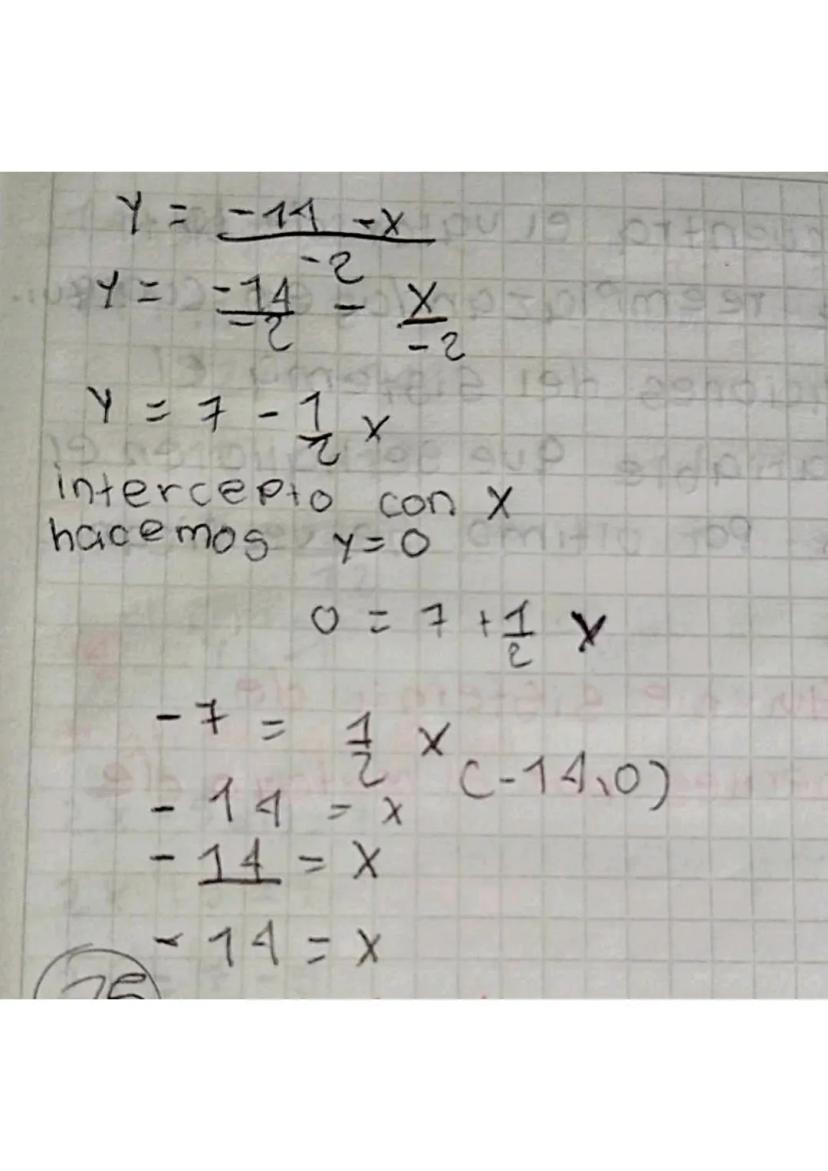 y = (-14 - x)/-2
y = -14/-2 - x/-2
y = 7 - 1/2 x
intercepto con x
hacemos y=0
0 = 7 + 1/2 x
-7 = 1/2 x
(-14,0)
-14 = x
-14 = x
-14 = x